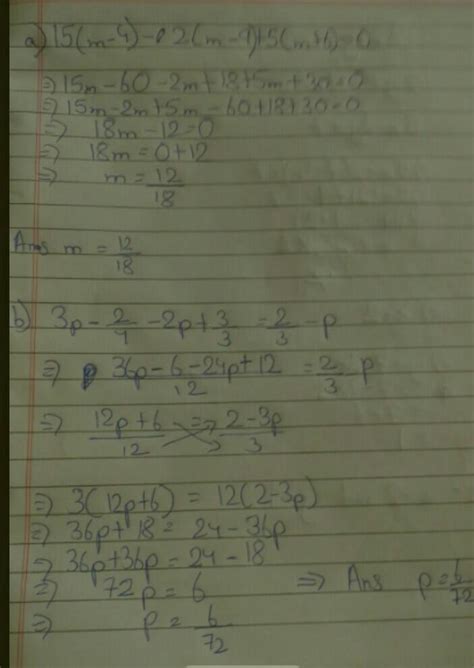 a) 15(m-4)-2(m-9)+5(m+6)=0
⇒ 15m-60-2m+18+5m+30=0
⇒ 15m-2m+5m-60+18+30=0
⇒ 18m-12=0
⇒ 18m=0+12
⇒ m=12/18
Ans m = 12/18
b) 3p-2/4-2p+3/3=2/3-p
⇒ 36p-6-24p+12/12=2/3 p
⇒ 12p+6/12 = 2-3p/3
⇒ 3(12p+6)=12(2-3p)
⇒ 36p+18=24-36p
⇒ 36p+36p=24-18
⇒ 72p=6 ⇒ Ans p=6/72
⇒ p=6/72